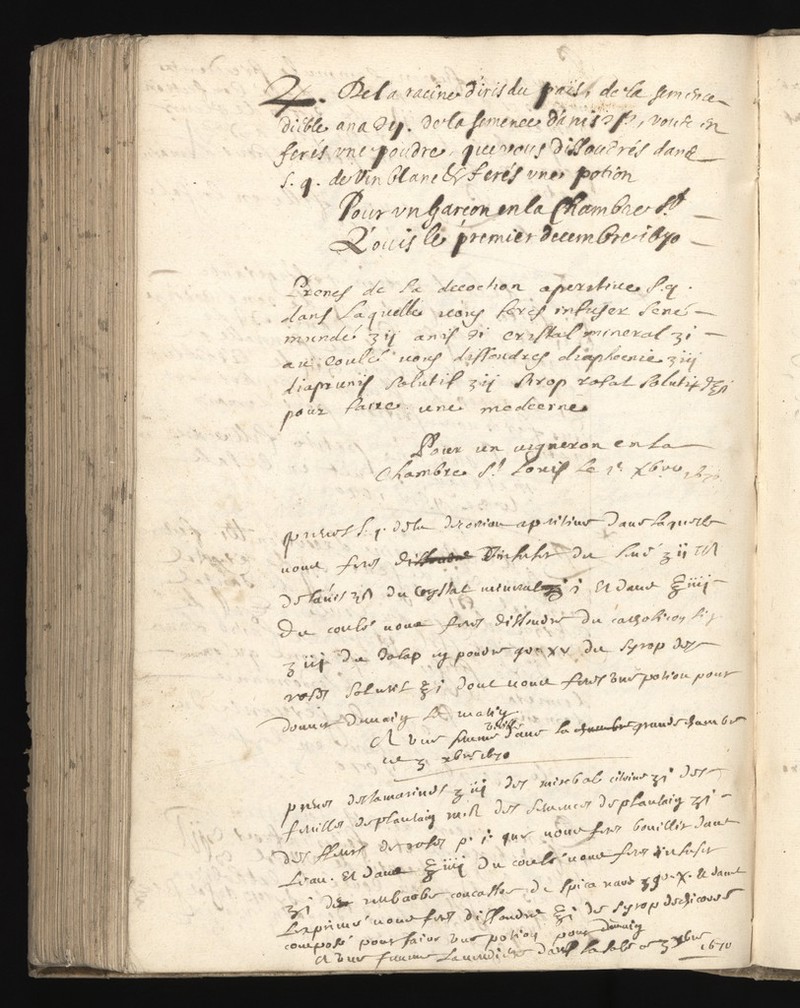 ℞. De la racine d'iris du païs, de la semence
d'ieble ana ʒij. de la semence d'anis ʒß, vous en
ferés une poudre que vous dissoudrés dans
s. q. de vin blanc & ferés une potion
Pour un Garçon en la Chambre St
Louis le premier decembre 1670
Prenes de la decoction aperitive s. q.
dans laquelle vous feres infuser sené
mundé ʒij anis ʒi cristal mineral ʒi
au coulé vous dissoudres diaphoenic ʒiij
diaprunis solutif ʒij sirop rosat solutif
pour faire une medecine
Pour un vigneron en la
Chambre St Louis le 1r xbre
prenes s. q. de la decoction aperitive dans laquelle
vous feres infuser du sené ʒii
de l'anis ʒß du crystal mineral ʒi et dans ℥iiij
du coulé vous feres dissoudre du catholicon
ʒiij du Jalap en poudre gr. xv du syrop de
roses solutif ℥i dont vous feres une potion pour
donner demain le matin
A une femme dans la grande chambre
ce 3 xbre 1670
prenes des tamarins ʒiij des mirobal citrins ʒi des
feuilles de plantain mß des semences de plantain ʒi
des fleurs de roses p. i. que vous feres bouillir dans
l'eau. et dans ℥iiij du coulé vous feres infuser
ʒi de rubarbe concassee de spica nard gr. x. et dans
l'exprimé vous feres dissoudre ℥i de syrop de chicoree
composé pour faire une potion pour demain
A une femme dans la sale ce 3 xbre
1670